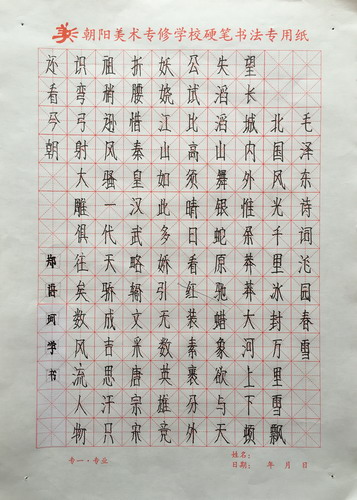 朝阳美术专修学校硬笔书法专用纸
毛泽东诗词沁园春雪
北国风光千里冰封万里雪飘
望长城内外惟余莽莽大河上下顿
失滔滔山舞银蛇原驰蜡象欲与天
公试比高须晴日看红装素裹分外
妖娆江山如此多娇引无数英雄竞
折腰惜秦皇汉武略输文采唐宗宋
祖稍逊风骚一代天骄成吉思汗只
识弯弓射大雕俱往矣数风流人物
还看今朝
学书
专一·专业
姓名:
日期: 年 月 日